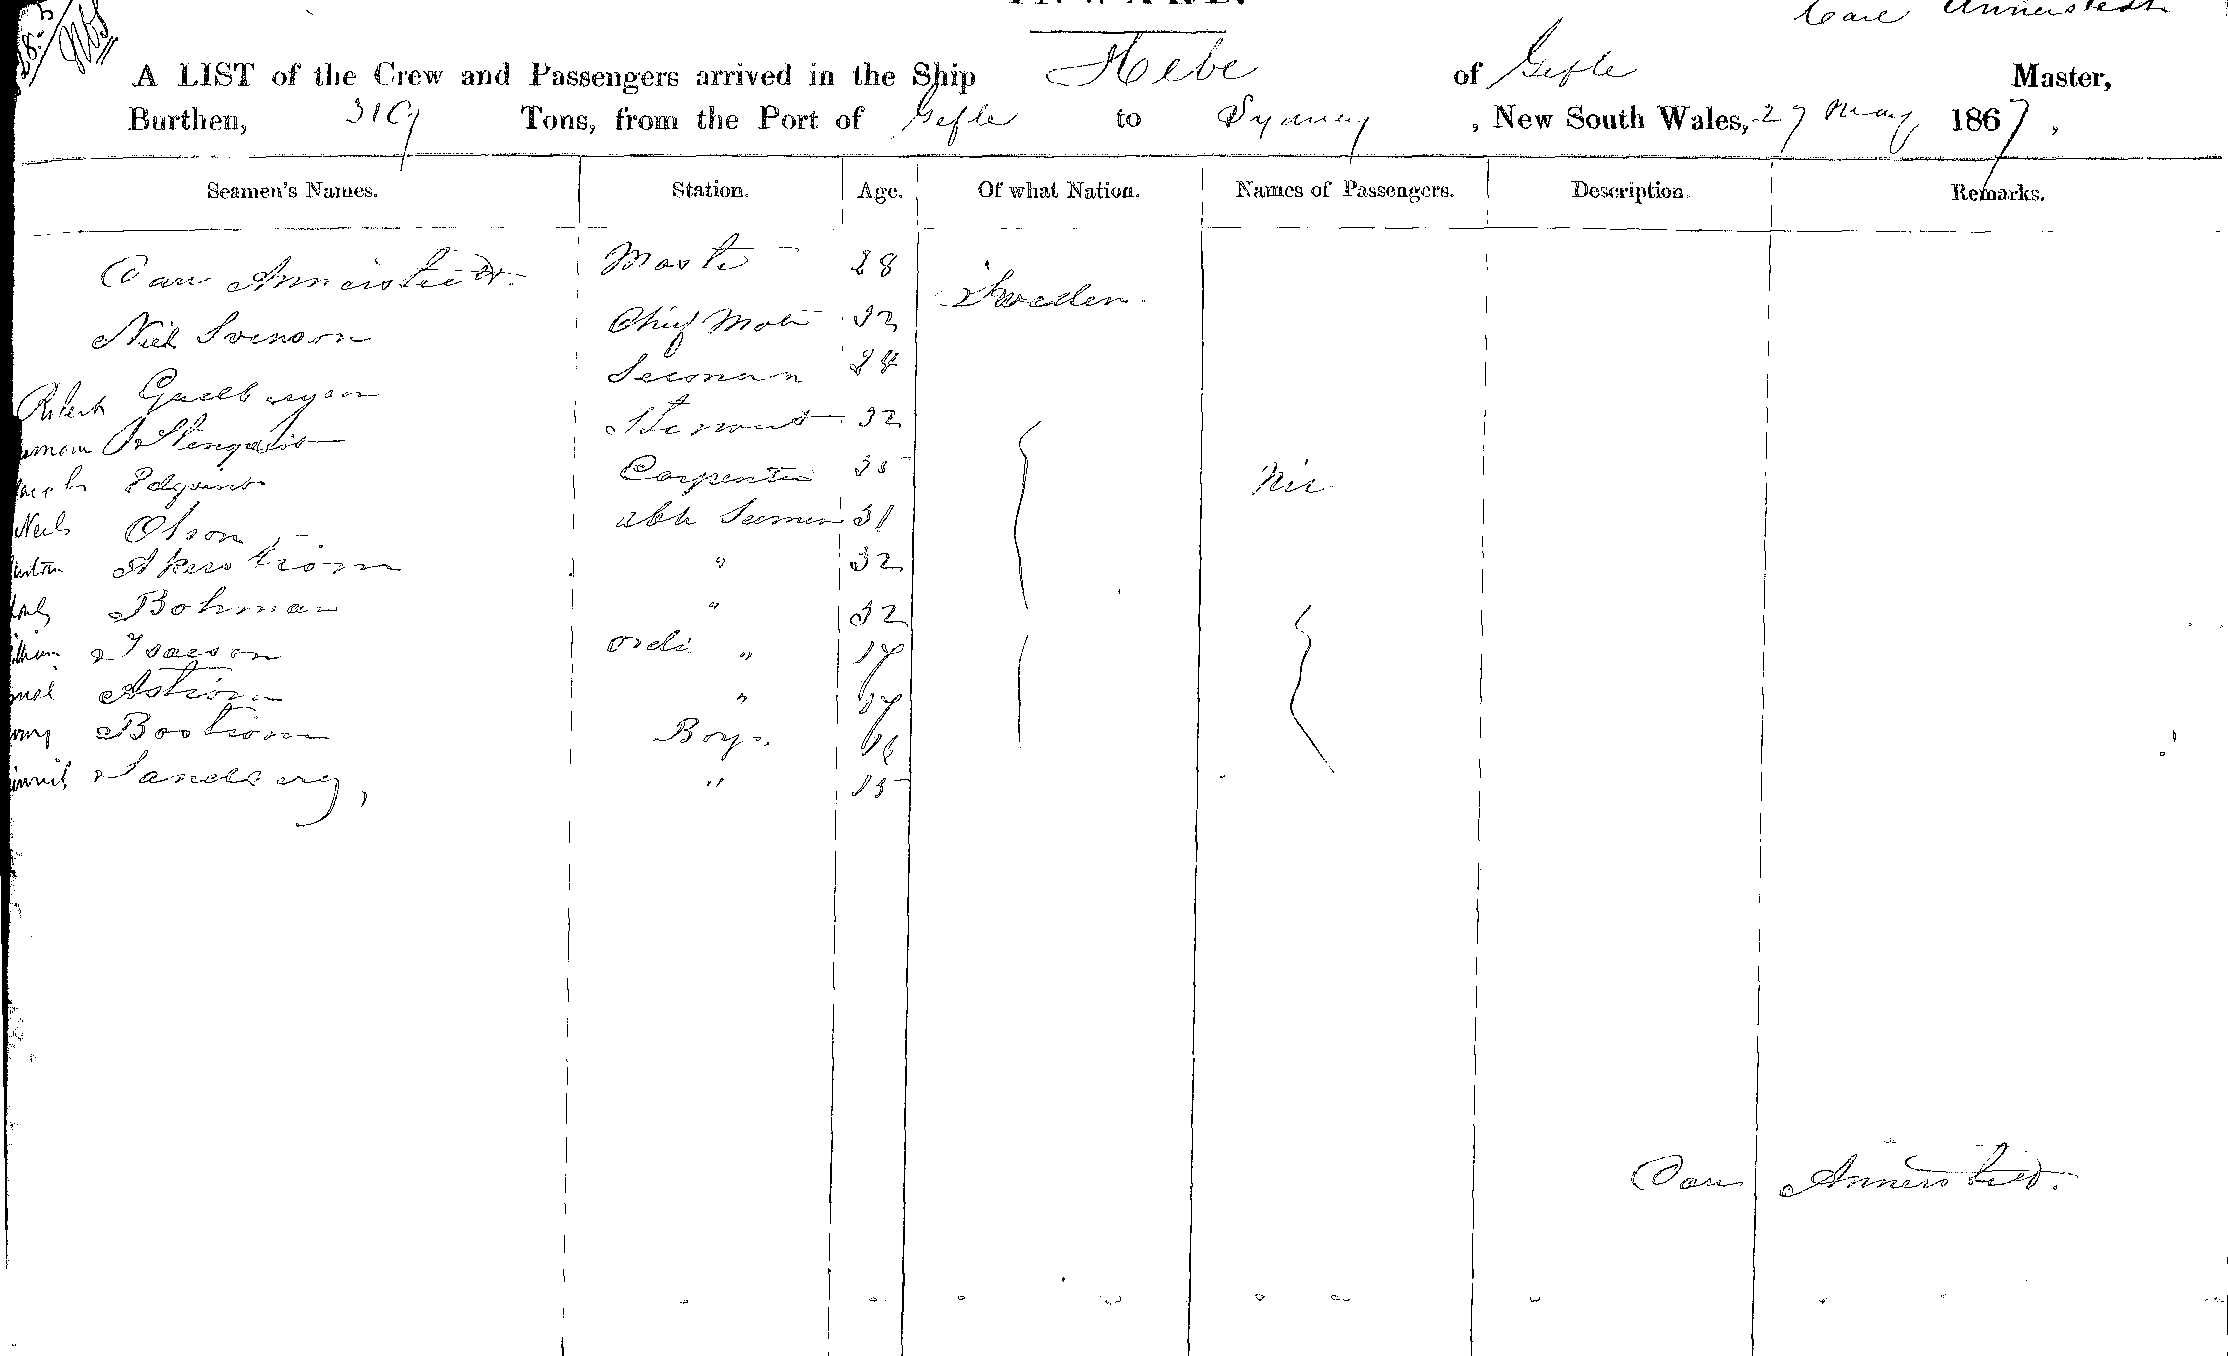 Carl Annerstedt
A LIST of the Crew and Passengers arrived in the Ship Hebe of Gefle Master,
Burthen, 319 Tons, from the Port of Gefle to Sydney, New South Wales, 27 May 1867,
Seamen's Names. Station. Age. Of what Nation. Names of Passengers. Description. Remarks.
Carl Annerstedt. Master 28 Sweden.
Niel Svenson Chief Mate 32
Robert Seaman 24
Steward 32
Carpenter 35 Nil
Neils Olson able Seamen 31
Akerstrom " 32
Bohman " 32
Isacson ordi " 17
Astrom " 17
Bostrom Boys. 16
Sandberg, " 15
Carl Annerstedt.